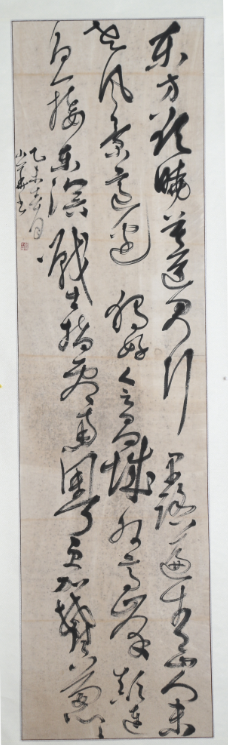 东方欲晓莫道君行早踏遍青山人未
老风景这边独好会昌城外高峰颠连
直接东溟战士指看南粤更加郁郁葱葱
乙未春月
山书